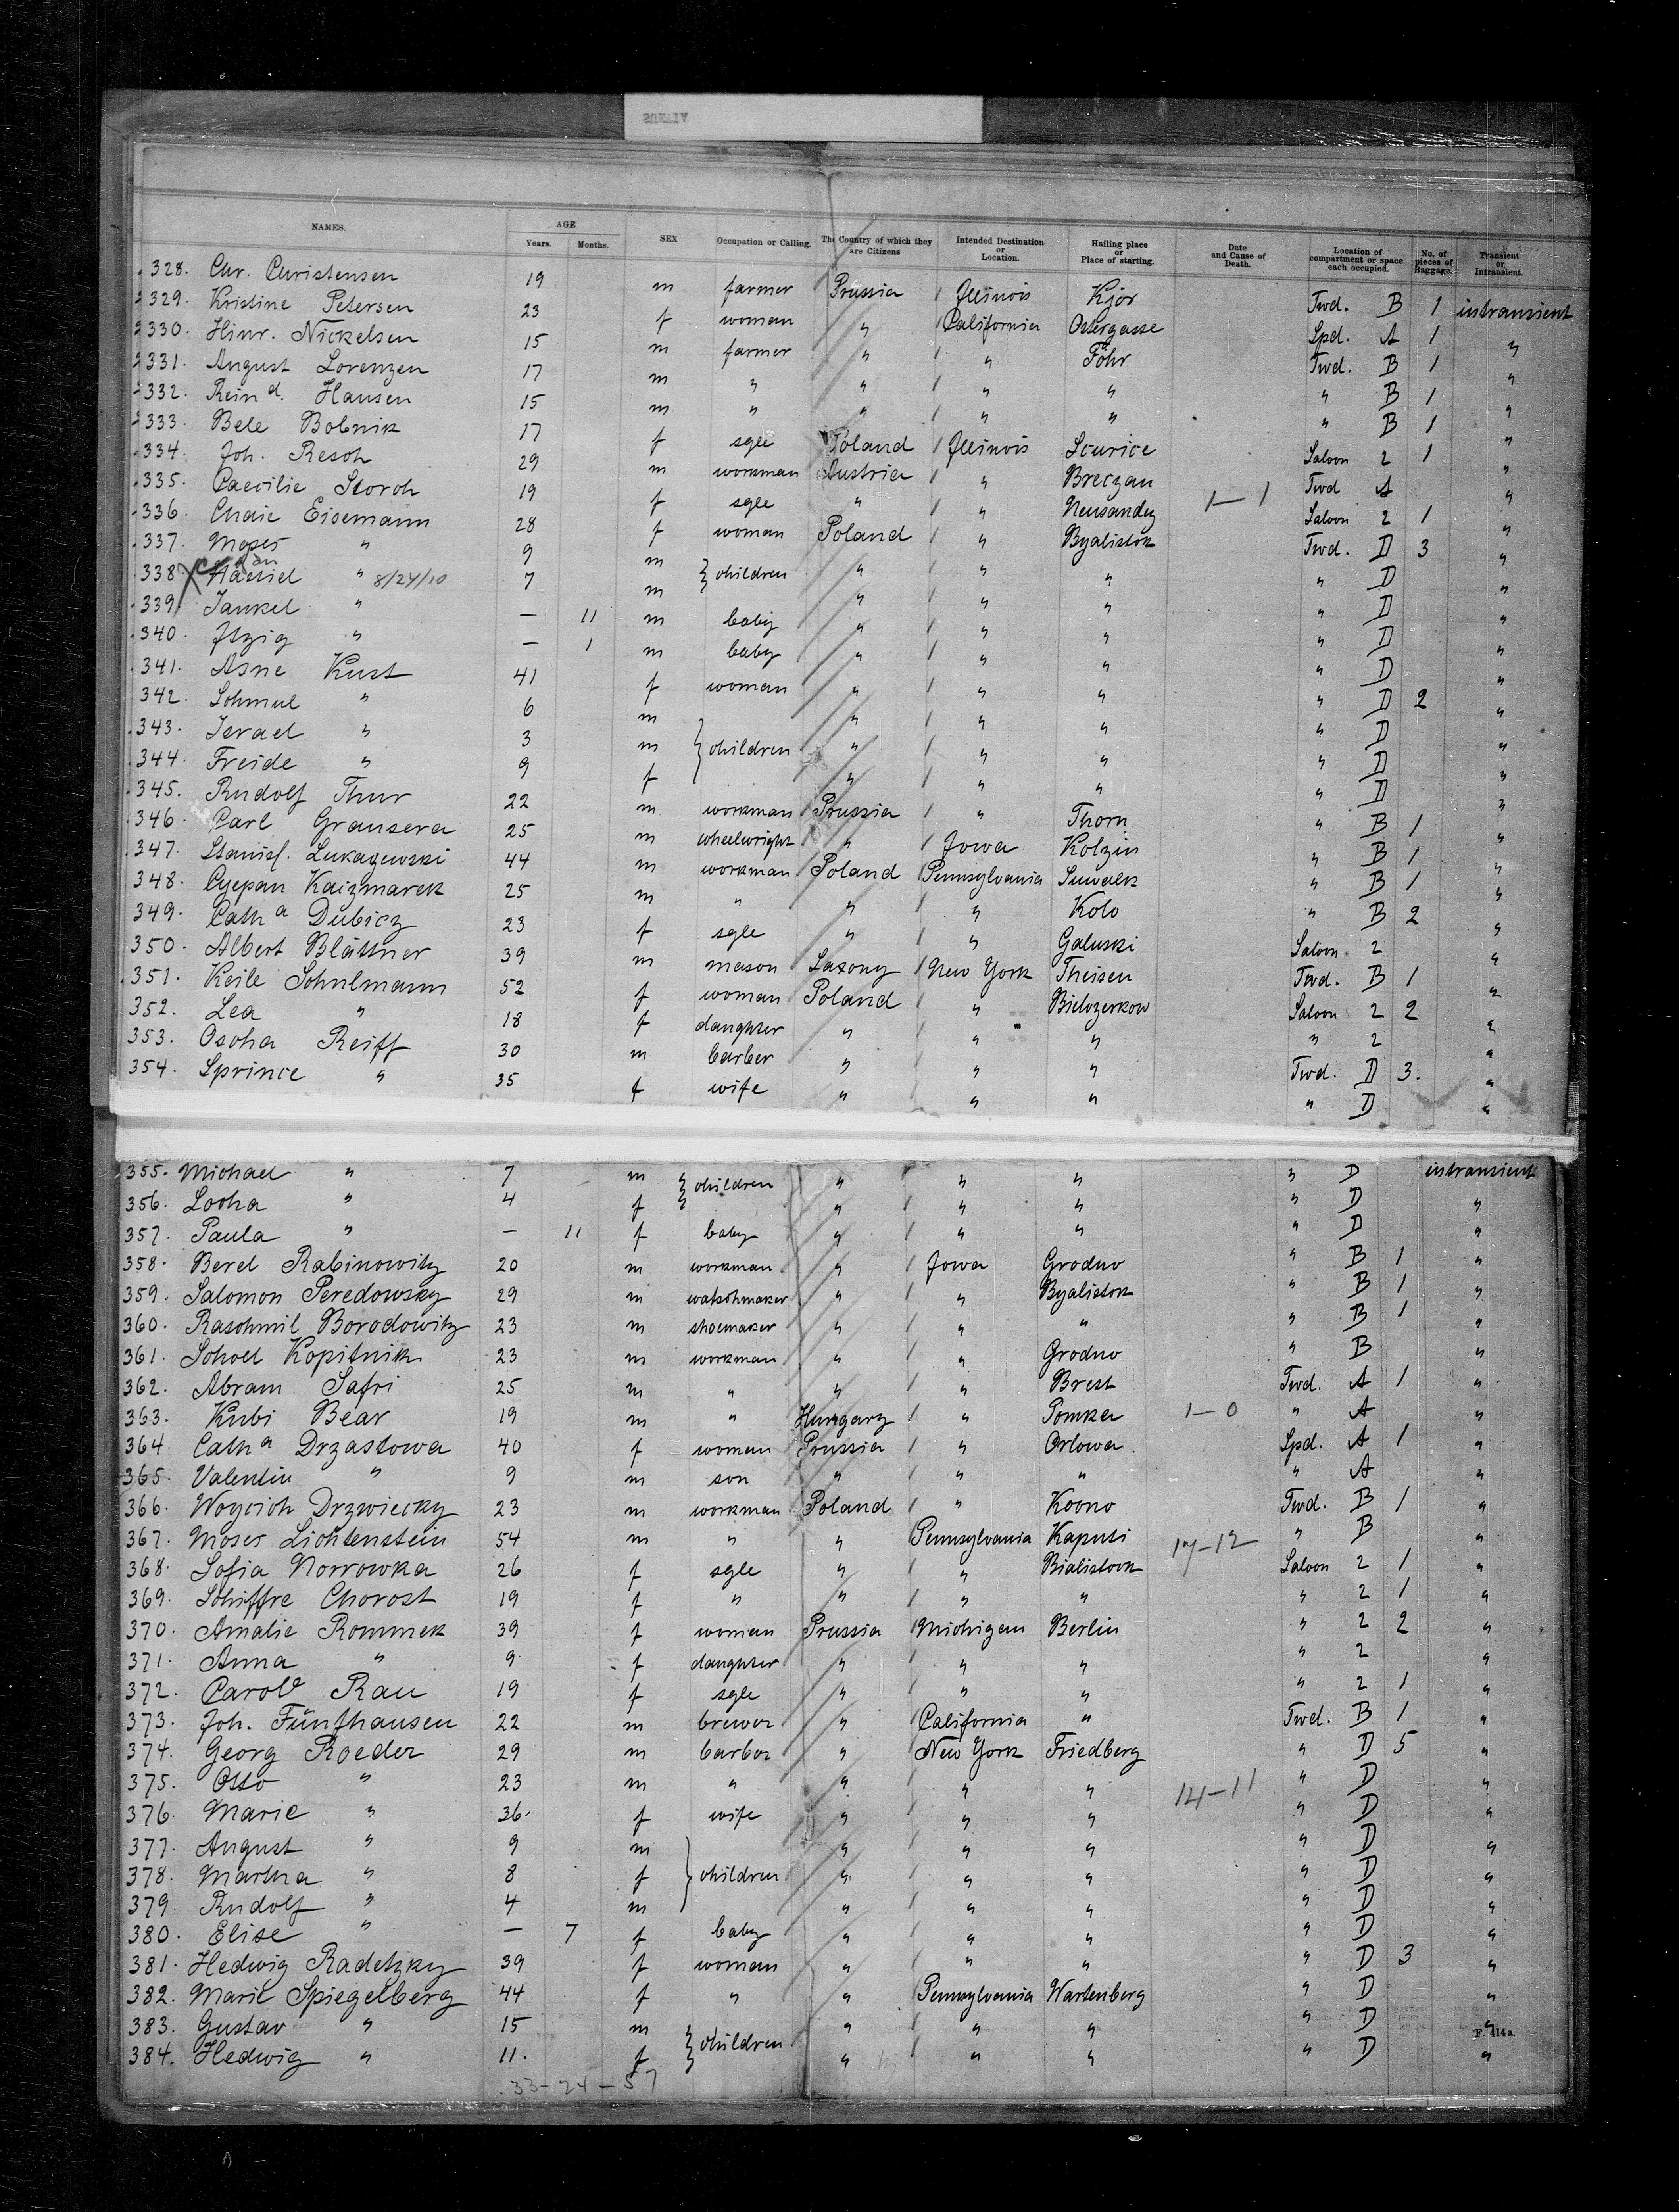 NAMES. AGE Years. Months. SEX Occupation or Calling. The Country of which they are Citizens Intended Destination or Location. Hailing place or Place of starting. Date and Cause of Death. Location of compartment or space each occupied. No. of pieces of Baggage. Transient or Intransient.
328. Chr. Christensen 19 m farmer Prussia Illinois Kjör Twd. B 1 intransient
329. Kristine Petersen 23 f woman " California Ostergasse Spd. A 1 "
330. Hinr. Nickelsen 15 m farmer " " Föhr Twd. B 1 "
331. August Lorenzen 17 m " " " " " B 1 "
332. Reind. Hansen 15 m " " " " " B 1 "
333. Bele Bobnik 17 f sgle Poland Illinois Scurice Saloon 2 1 "
334. Joh. Resch 29 m workman Austria " Breczan Twd A "
335. Caecilie Storch 19 f sgle " " Neusandez 1-1 Saloon 2 1 "
336. Chaie Eisemann 28 f woman Poland " Byalistok Twd. D 3 "
337. Moses " 9 m } children " " " " D "
338. " 8/24/10 7 m " " " " D "
339. Jankel " — 11 m baby " " " " D "
340. Itzig " — 1 m baby " " " " D "
341. Asne Kust 41 f woman " " " " D 2 "
342. Schmul " 6 m " " " " D "
343. Israel " 3 m } children " " " " D "
344. Freide " 9 f " " " " D "
345. Rudolf Thur 22 m workman Prussia " Thorn " B 1 "
346. Carl Gransera 25 m wheelwright " Iowa Kolzin " B 1 "
347. Stanisl. Lukagewski 44 m workman Poland Pennsylvania Suwalk " B 1 "
348. Cyepan Kaizmarek 25 m " " " Kolo " B 2 "
349. Catha Dubicz 23 f sgle " " Galuski Saloon 2 "
350. Albert Blättner 39 m mason Saxony New York Theisen Twd. B 1 "
351. Keile Schulmann 52 f woman Poland " Bielozerkow Saloon 2 2 "
352. Lea " 18 f daughter " " " " 2 "
353. Oscha Reiff 30 m barber " " " Twd. D 3. "
354. Sprince " 35 f wife " " " " D "
355. Michael " 7 m } children " " " " D intransient
356. Locha " 4 f " " " " D "
357. Paula " — 11 f baby " " " " D "
358. Berel Rabinowitz 20 m workman " Iowa Grodno " B 1 "
359. Salomon Peredowsky 29 m watschmaker " " Byalistok " B 1 "
360. Raschmil Borodowitz 23 m shoemaker " " " " B 1 "
361. Schoel Kopitnik 23 m workman " " Grodno " B "
362. Abram Safri 25 m " " " Brest Twd. A 1 "
363. Kubi Bear 19 m " Hungary " Pomka 1-0 " A "
364. Catha Drzastowa 40 f woman Prussia " Orlowa Spd. A 1 "
365. Valentin " 9 m son " " " " A "
366. Woycich Drzwiecky 23 m workman Poland " Kovno Twd. B 1 "
367. Moses Lichtenstein 54 m " " Pennsylvania Kaputi 17-12 " B "
368. Sofia Norrowka 26 f sgle " " Bialistock Saloon 2 1 "
369. Schiffre Chorost 19 f " " " " " 2 1 "
370. Amalie Rommek 39 f woman Prussia Michigan Berlin " 2 2 "
371. Anna " 9 f daughter " " " " 2 "
372. Carole Rau 19 f sgle " " " " 2 1 "
373. Joh. Fünfhausen 22 m brewer " California " Twd. B 1 "
374. Georg Roeder 29 m barber " New York Friedberg " D 5 "
375. Otto " 23 m " " " " 14-11 " D "
376. Marie " 36 f wife " " " " D "
377. August " 9 m " " " " D "
378. Martha " 8 f } children " " " " D "
379. Rudolf " 4 m " " " " D "
380. Elise " — 7 f baby " " " " D "
381. Hedwig Radetzky 39 f woman " " " " D 3 "
382. Marie Spiegelberg 44 f " " Pennsylvania Wartenberg " D "
383. Gustav " 15 m } children " " " " D "
384. Hedwig " 11. f " " " " D "
F. 414a.
33-24-57